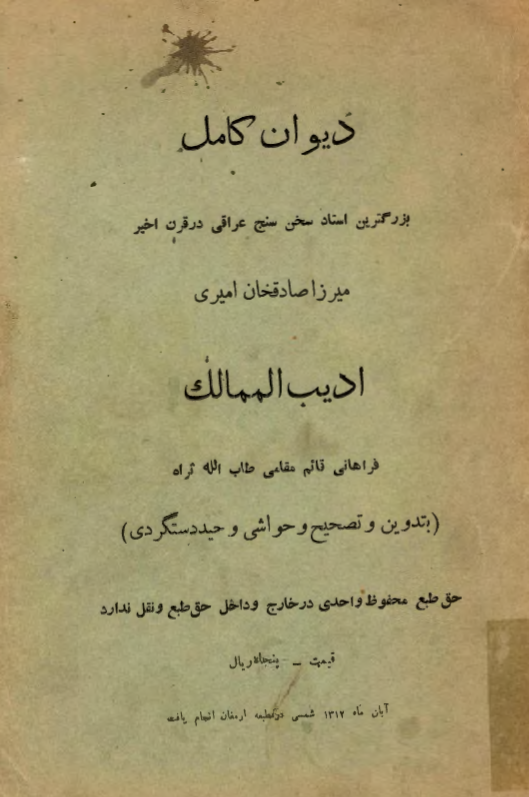 دیوان کامل
بزرگترین استاد سخن سنج عراقی درقرن اخیر
میرزا صادقخان امیری
ادیب‌الممالک
فراهانی قائم مقامی طاب الله ثراه
(بتدوین و تصحیح و حواشی وحیددستگردی)
حق طبع محفوظ واحدی در خارج وداخل حق طبع ونقل ندارد
قیمت ــ پنجاه ریال
آبان ماه ۱۳۱۲ شمسی در مطبعه ارمغان انجام یافت